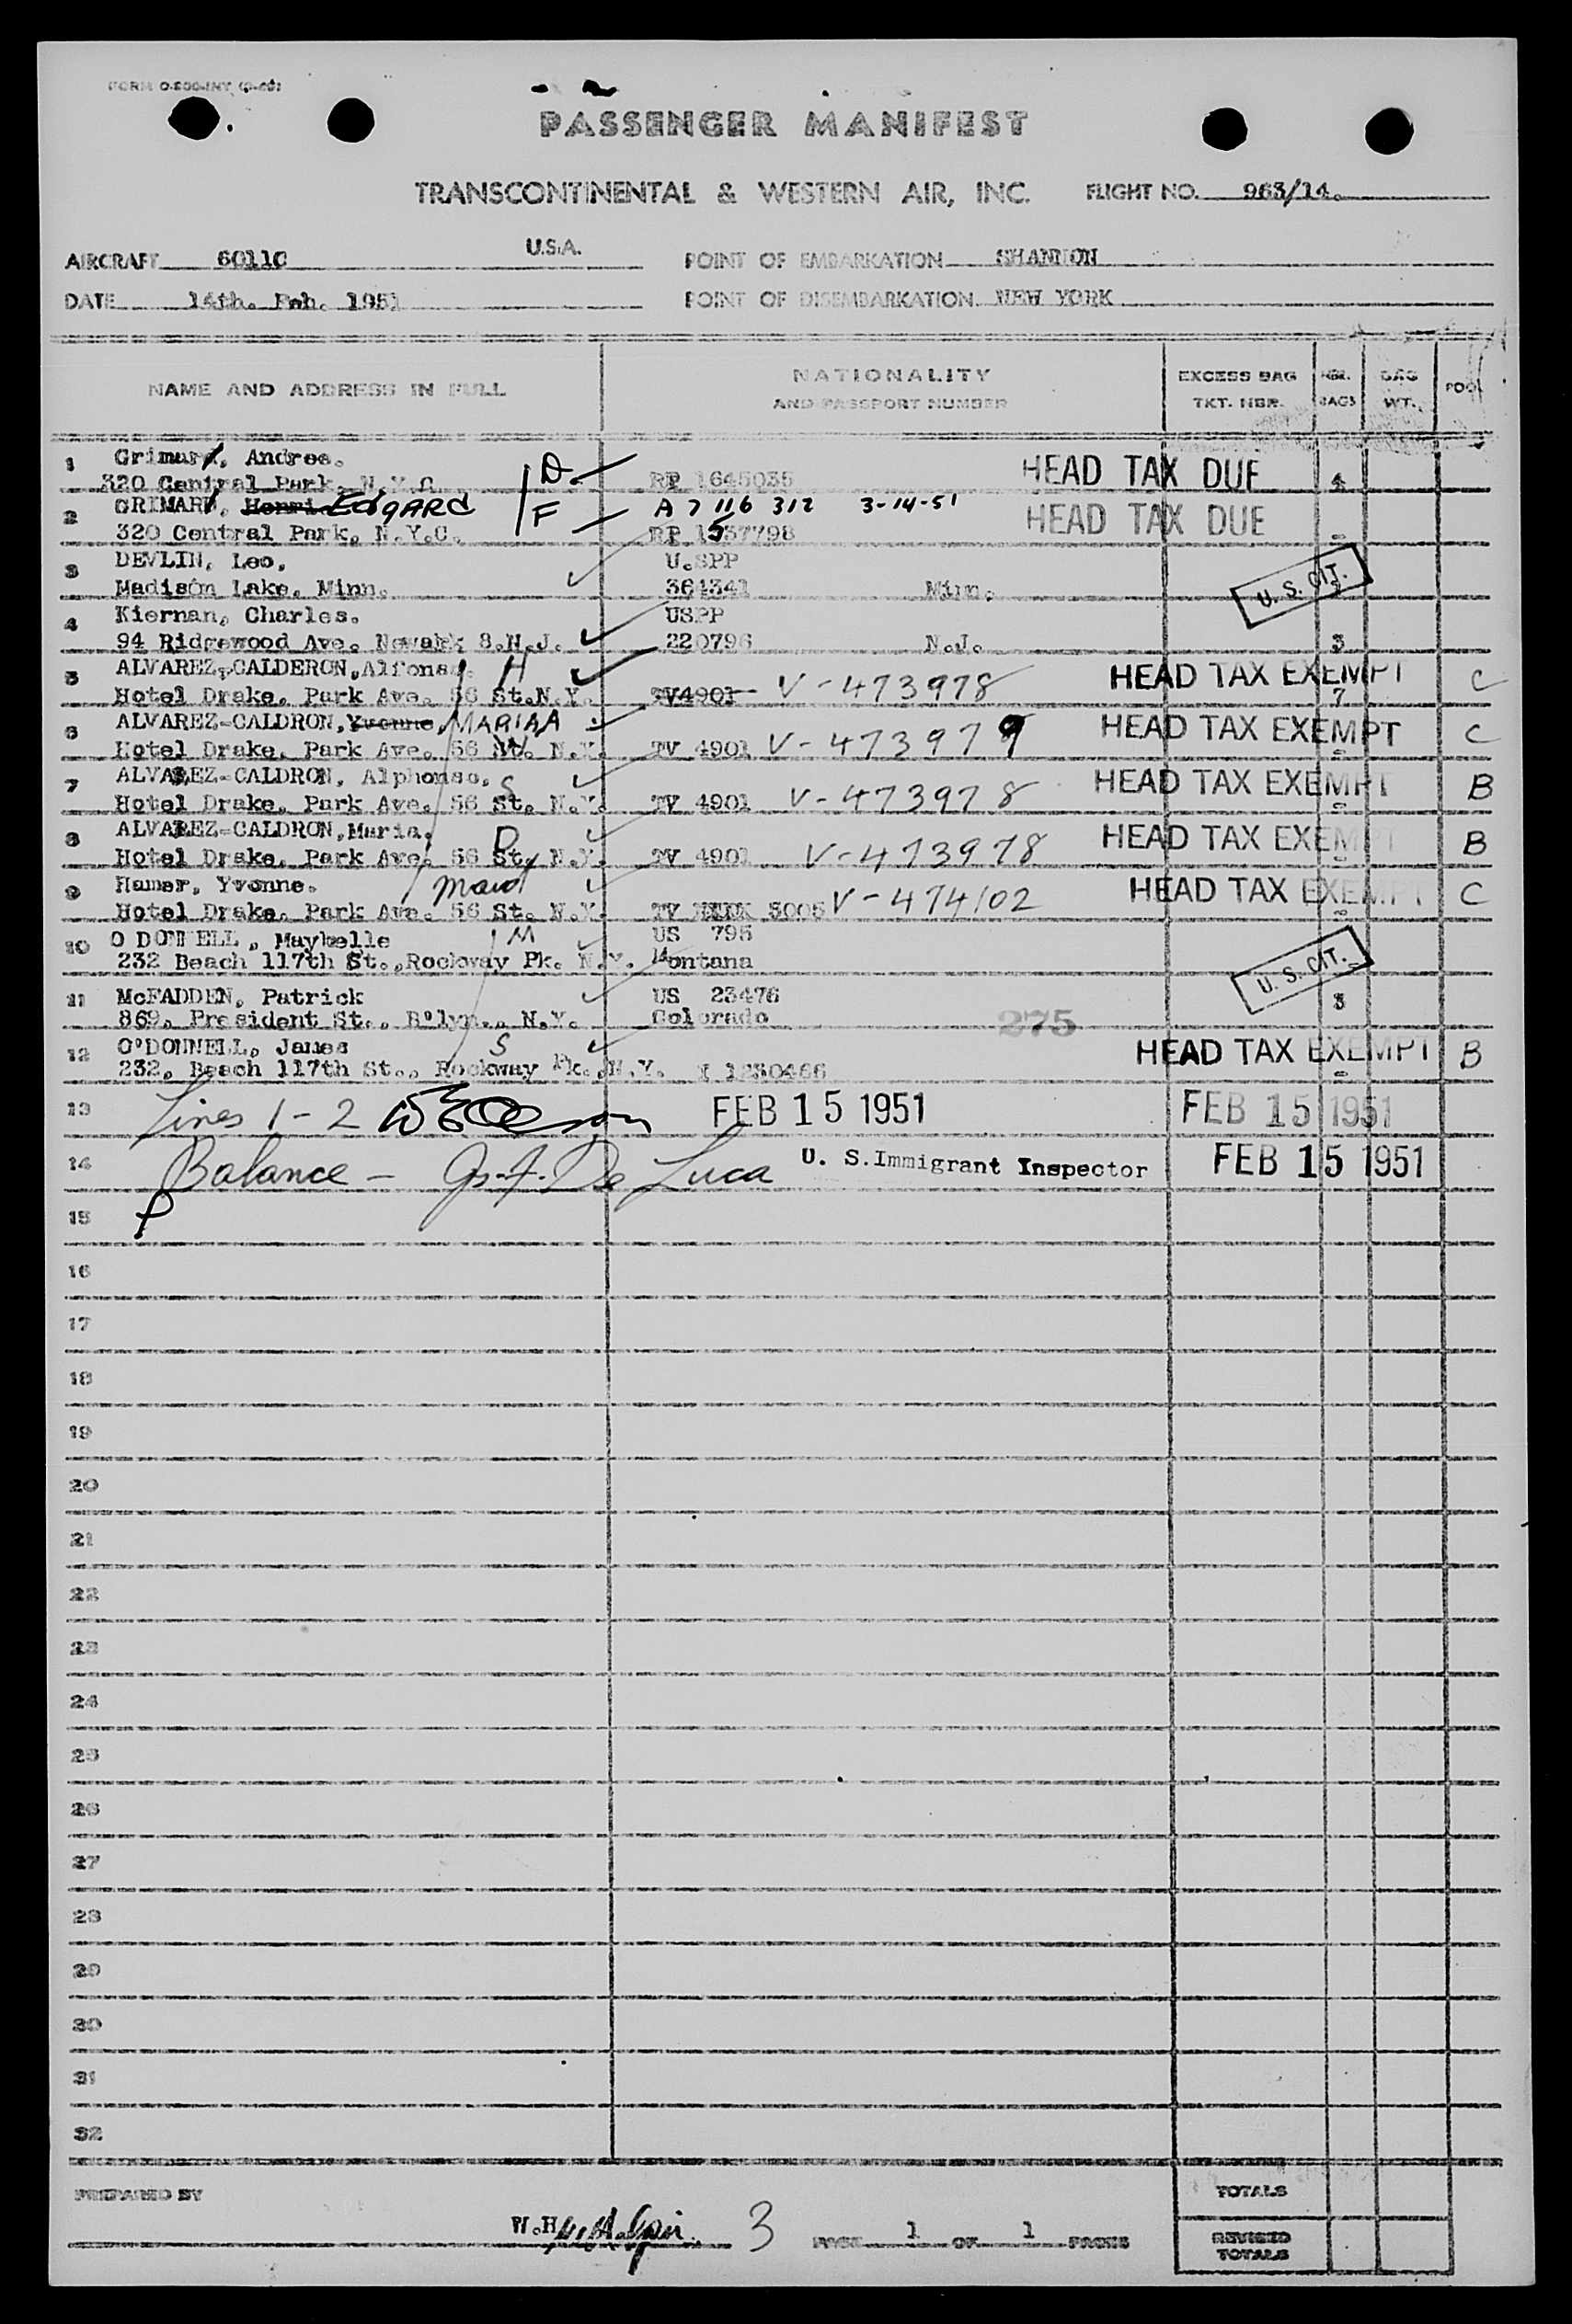 PASSENGER MANIFEST
TRANSCONTINENTAL & WESTERN AIR, INC. FLIGHT NO. 963/14.
AIRCRAFT 6011C U.S.A. POINT OF EMBARKATION SHANNON
DATE 14th. Feb. 1951 POINT OF DISEMBARKATION NEW YORK
NAME AND ADDRESS IN FULL NATIONALITY AND PASSPORT NUMBER EXCESS BAG TKT. NBR. NBR. BAGS BAG WT. POOL
1 Grimard, Andree. D.
320 Central Park. N.Y.C RP 1645035 HEAD TAX DUE 4
2 GRIMARD, Henri EDGARD F A 7 116 312 3-14-51 HEAD TAX DUE
320 Central Park, N.Y.C. RP 1537798
3 DEVLIN, Leo. U.SPP
Madison Lake, Minn. 364341 Minn. U.S. CIT.
4 Kiernan, Charles. USPP
94 Ridgewood Ave. Newark 8.N.J. 220796 N.J. 3
5 ALVAREZ-CALDERON, Alfonso H HEAD TAX EXEMPT C
Hotel Drake, Park Ave. 56 St.N.Y. TV4901 V-473978 7
6 ALVAREZ-CALDRON, Yvonne, MARIAA HEAD TAX EXEMPT C
Hotel Drake, Park Ave. 56 St. N.Y. W TV 4901 V-473979
7 ALVAREZ-CALDRON, Alphonso. S HEAD TAX EXEMPT B
Hotel Drake, Park Ave. 56 St. N.Y. TV 4901 V-473978
8 ALVAREZ-CALDRON, Maria. D HEAD TAX EXEMPT B
Hotel Drake, Park Ave. 56 St. N.Y. TV 4901 V-473978
9 Hamer, Yvonne. maid HEAD TAX EXEMPT C
Hotel Drake, Park Ave. 56 St. N.Y. TV 5005 V-474102
10 O DONNELL, Maybelle M US 795
232 Beach 117th St., Rockway Pk. N.Y. Montana U.S. CIT.
11 McFADDEN, Patrick US 23476 3
869, President St., B'lyn., N.Y. Colorado 275
12 O'DONNELL, James S HEAD TAX EXEMPT B
232, Beach 117th St., Rockway Pk. N.Y. I 1230466
13 Lines 1-2 FEB 15 1951 FEB 15 1951
14 Balance - De Luca U. S. Immigrant Inspector FEB 15 1951
15
16
17
18
19
20
21
22
23
24
25
26
27
28
29
30
31
32
PREPARED BY TOTALS
W.H. 3 PAGE 1 OF 1 PAGES REVISED TOTALS